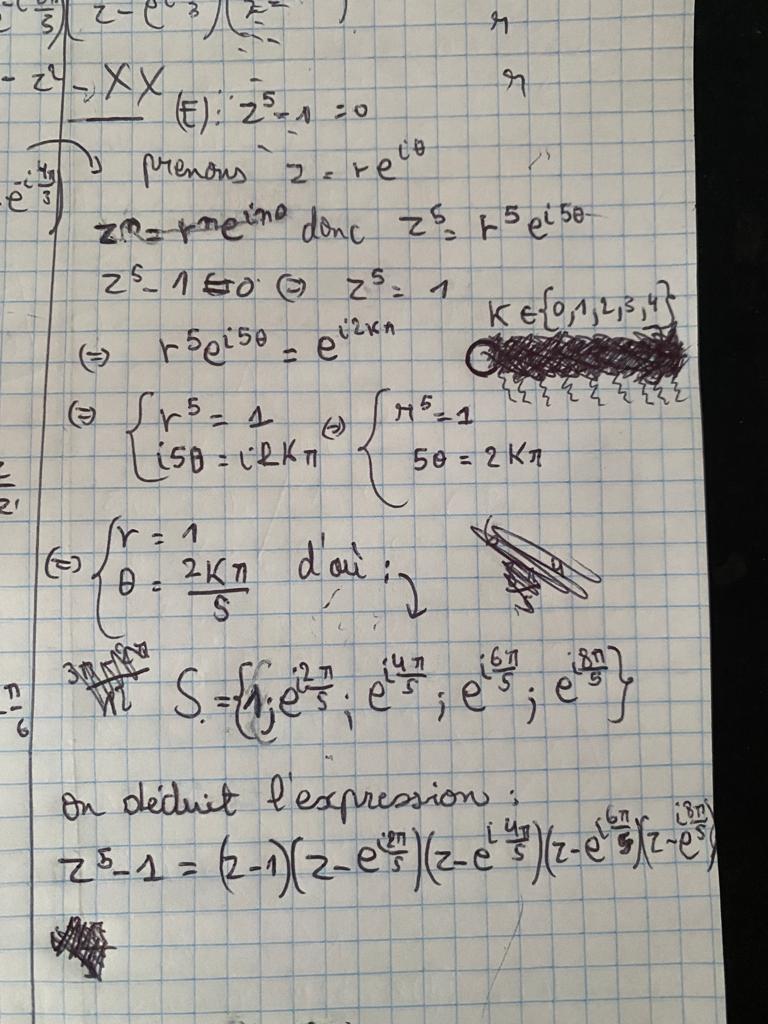 (z-e
- z² -
XX
(E): z⁵-1=0
e^{-i\frac{4π}{3}})
prenons z = re^{iθ}
zⁿ = rⁿe^{inθ} donc z⁵ = r⁵e^{i5θ}
z⁵-1=0 ⇔ z⁵ = 1
K ∈ {0,1,2,3,4}
⇔ r⁵e^{i5θ} = e^{i2Kπ}
⇔ { r⁵ = 1 ⇔ { r⁵=1
i5θ = i2Kπ 5θ = 2Kπ
⇔ { r = 1
θ = \frac{2Kπ}{5} d'où :
S = {1; e^{i\frac{2π}{5}}; e^{i\frac{4π}{5}}; e^{i\frac{6π}{5}}; e^{i\frac{8π}{5}}}
\frac{π}{6}
on déduit l'expression :
z⁵-1 = (z-1)(z-e^{i\frac{2π}{5}})(z-e^{i\frac{4π}{5}})(z-e^{i\frac{6π}{5}})(z-e^{i\frac{8π}{5}})